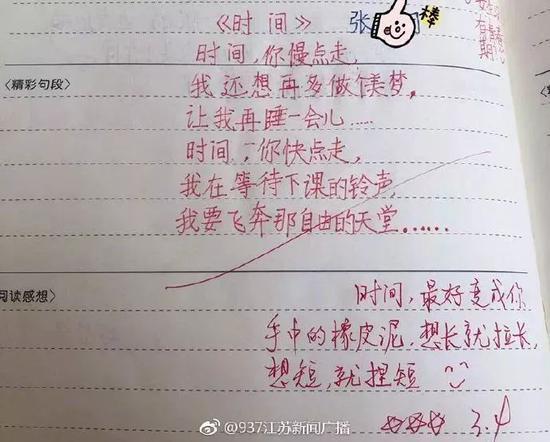 《时间》 张 棒
时间，你慢点走，
〈精彩句段〉
我还想再多做个美梦，
让我再睡一会儿……
时间，你快点走，
我在等待下课的铃声，
我要飞奔那自由的天堂……
阅读感想〉
时间，最好变成你
手中的橡皮泥，想长就拉长，
想短，就捏短
3.4
@937江苏新闻广播